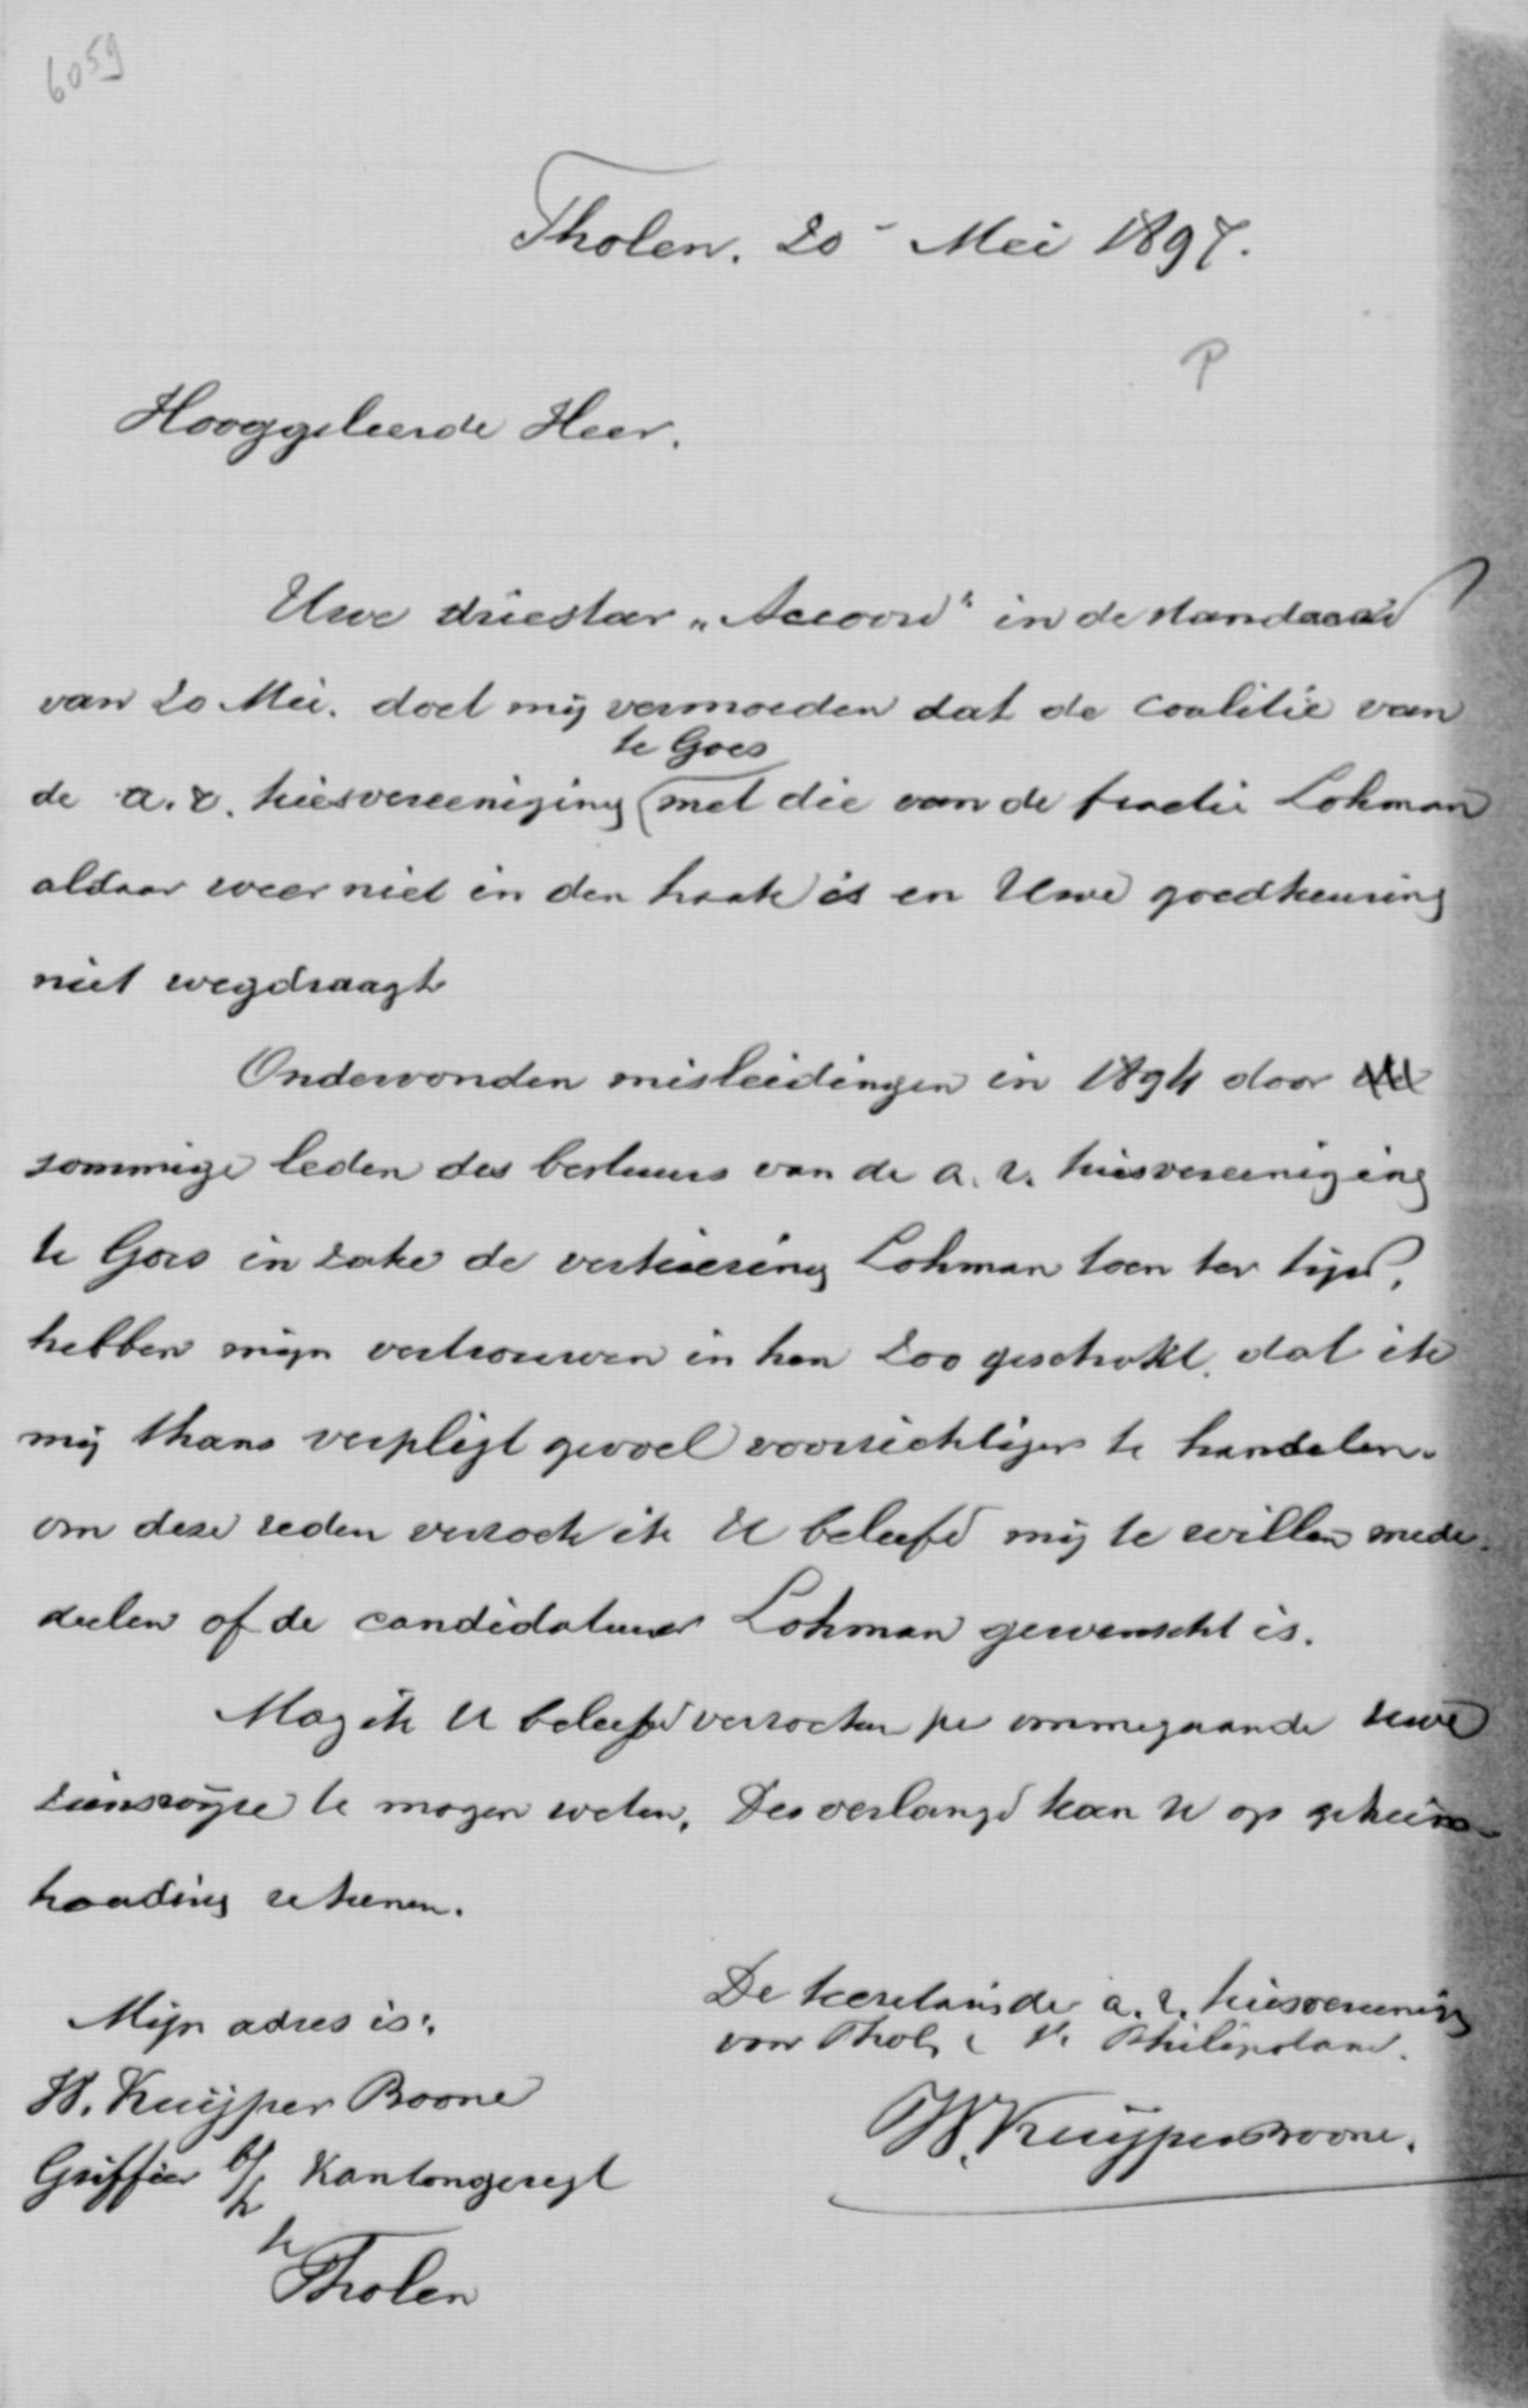 6059
Tholen. 20 - Mei 1897.
P
Hooggeleerde Heer.
Uwe driestar „Accoord" in de standaard
van 20 Mei. doet mij vermoeden dat de coalitie van
te Goes
de a. r. kiesvereeniging (met die van de fractie Lohman
aldaar weer niet in den haak is en Uwe goedkeuring
niet wegdraagt
Ondervonden misleidingen in 1894 door
sommige leden des bestuurs van de a. r. kiesvereeniging
te Goes in zake de verkiezing Lohman toen ter tijd,
hebben mijn vertrouwen in hen zoo geschokt. dat ik
mij thans verpligt gevoel voorzichtiger te handelen.
om deze reden verzoek ik U beleefd mij te willen mede-
deelen of de candidatuur Lohman gewenscht is.
Mag ik U beleefd verzoeken per ommegaande uwe
zienswijze te mogen weten. Des verlangd kan U op geheim-
houding rekenen.
De secretaris der a. r. kiesvereenig
van Thol, St. Philipsland.
W. Kuijper Boone.
Mijn adres is:
W. Kuijper Boone
Griffier b/h Kantongeregt
te
Tholen